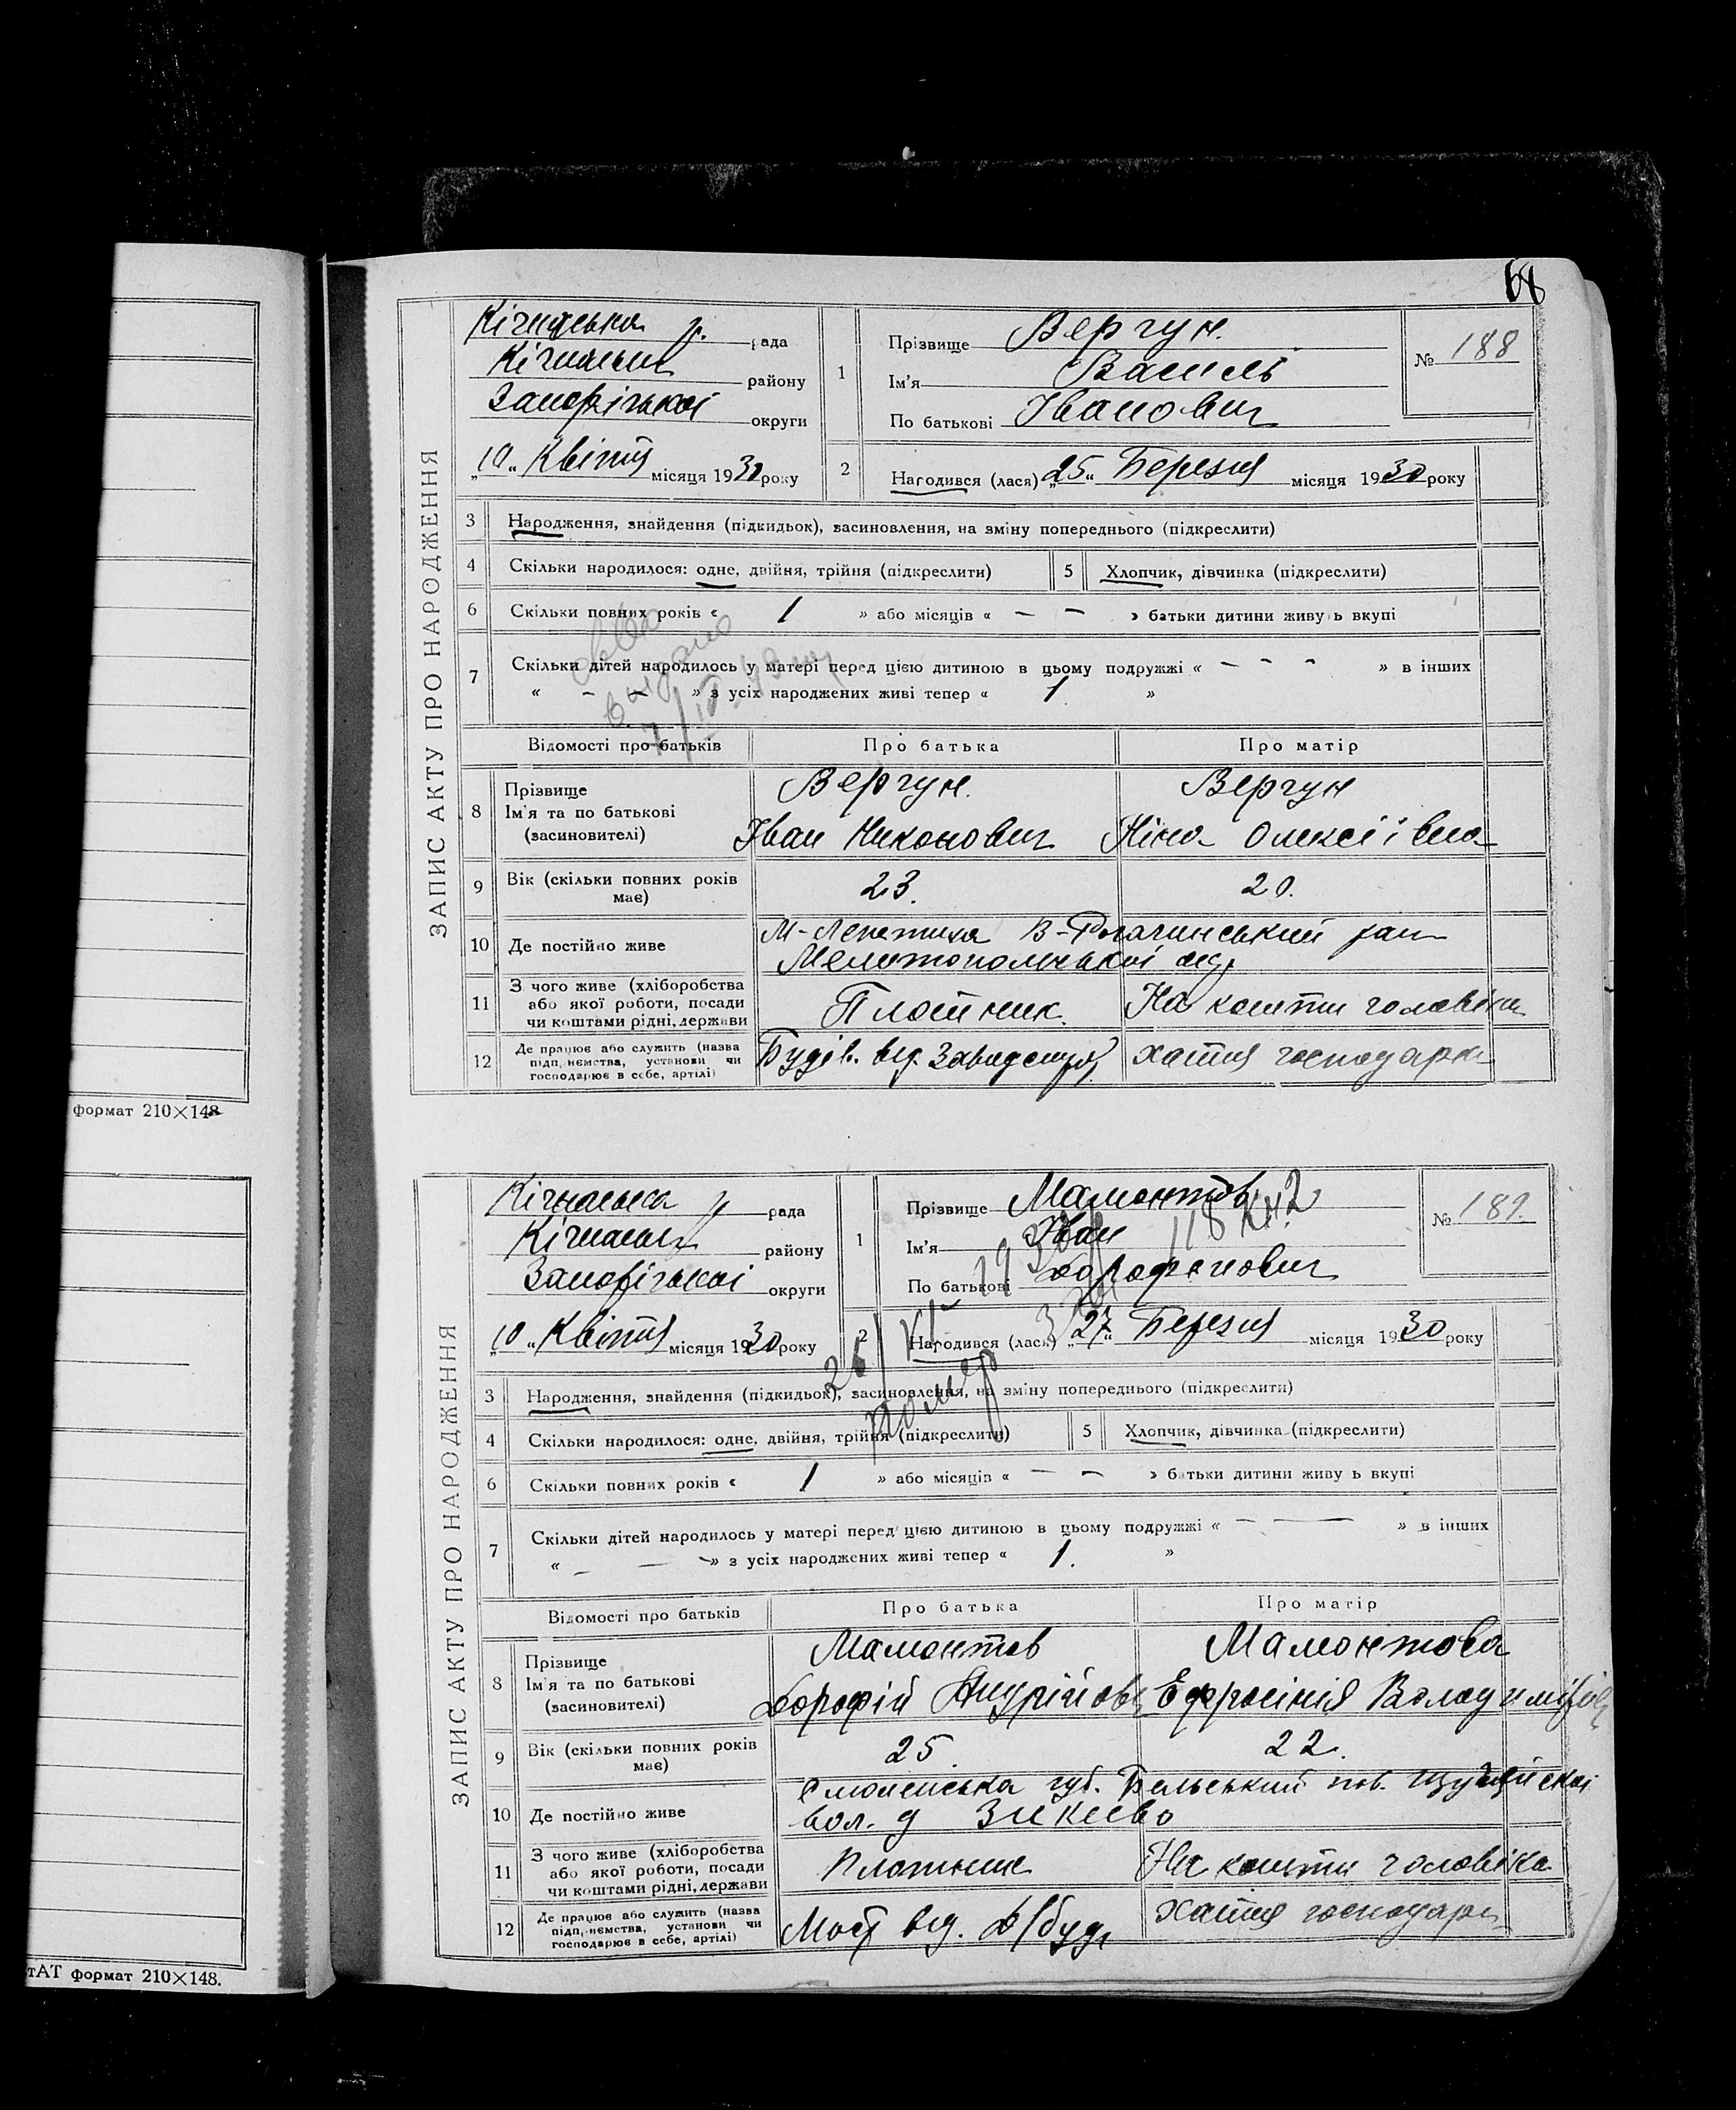 68
ЗАПИС АКТУ ПРО НАРОДЖЕННЯ
Кічкаська р. рада
Кічкаськ району
Запорізької округи
„10“ Квітня місяця 1930 року
1 Прізвище Вергун.
Ім'я Василь
По батькові Іванович
№ 188
2 Народився (лася) „25“ Березня місяця 1930 року
3 Народження, знайдення (підкидьок), засиновлення, на зміну попереднього (підкреслити)
4 Скільки народилося: одне, двійня, трійня (підкреслити) 5 Хлопчик, дівчинка (підкреслити)
6 Скільки повних років « 1 » або місяців « – – » батьки дитини живуть вкупі
7 Скільки дітей народилось у матері перед цією дитиною в цьому подружжі « – – – » в інших
« – – » з усіх народжених живі тепер « 1 »
Відомості про батьків Про батька Про матір
8 Прізвище
Ім'я та по батькові
(засиновителі)
Вергун. Вергун
Іван Никонович Ніна Олексіївна
9 Вік (скільки повних років має) 23. 20.
10 Де постійно живе М-Лепетиха В-Рогачинський рай
Мелітопольської окр
11 З чого живе (хліборобства
або якої роботи, посади
чи коштами рідні, держави
Плотник. На кошти чоловіка
12 Де працює або служить (назва
підприємства, установи чи
господарює в себе, артілі)
Будів. від. хатня господарк
формат 210×148
ЗАПИС АКТУ ПРО НАРОДЖЕННЯ
Кічкаська р рада
Кічкаськ району
Запорізької округи
„10“ Квітня місяця 1930 року
1 Прізвище Мамонтов
Ім'я Іван
По батькові Дорофійович
№ 189.
118 кн2
помер
2 Народився (лася) „27“ Березня місяця 1930 року
3 Народження, знайдення (підкидьок), засиновлення, на зміну попереднього (підкреслити)
4 Скільки народилося: одне, двійня, трійня (підкреслити) 5 Хлопчик, дівчинка (підкреслити)
6 Скільки повних років « 1 » або місяців « – – » батьки дитини живуть вкупі
7 Скільки дітей народилось у матері перед цією дитиною в цьому подружжі « – — » в інших
« – — » з усіх народжених живі тепер « 1. »
Відомості про батьків Про батька Про матір
8 Прізвище
Ім'я та по батькові
(засиновителі)
Мамонтов Мамонтова
Дорофій Андрійов Єфросінія Володимірів
9 Вік (скільки повних років має) 25. 22.
10 Де постійно живе Смоленська губ. Бельський пов.
вол. д Зикеево
11 З чого живе (хліборобства
або якої роботи, посади
чи коштами рідні, держави
Плотник На кошти чоловіка
12 Де працює або служить (назва
підприємства, установи чи
господарює в себе, артілі)
Мост від. Д/буд. хатня господарк
тАТ формат 210×148.